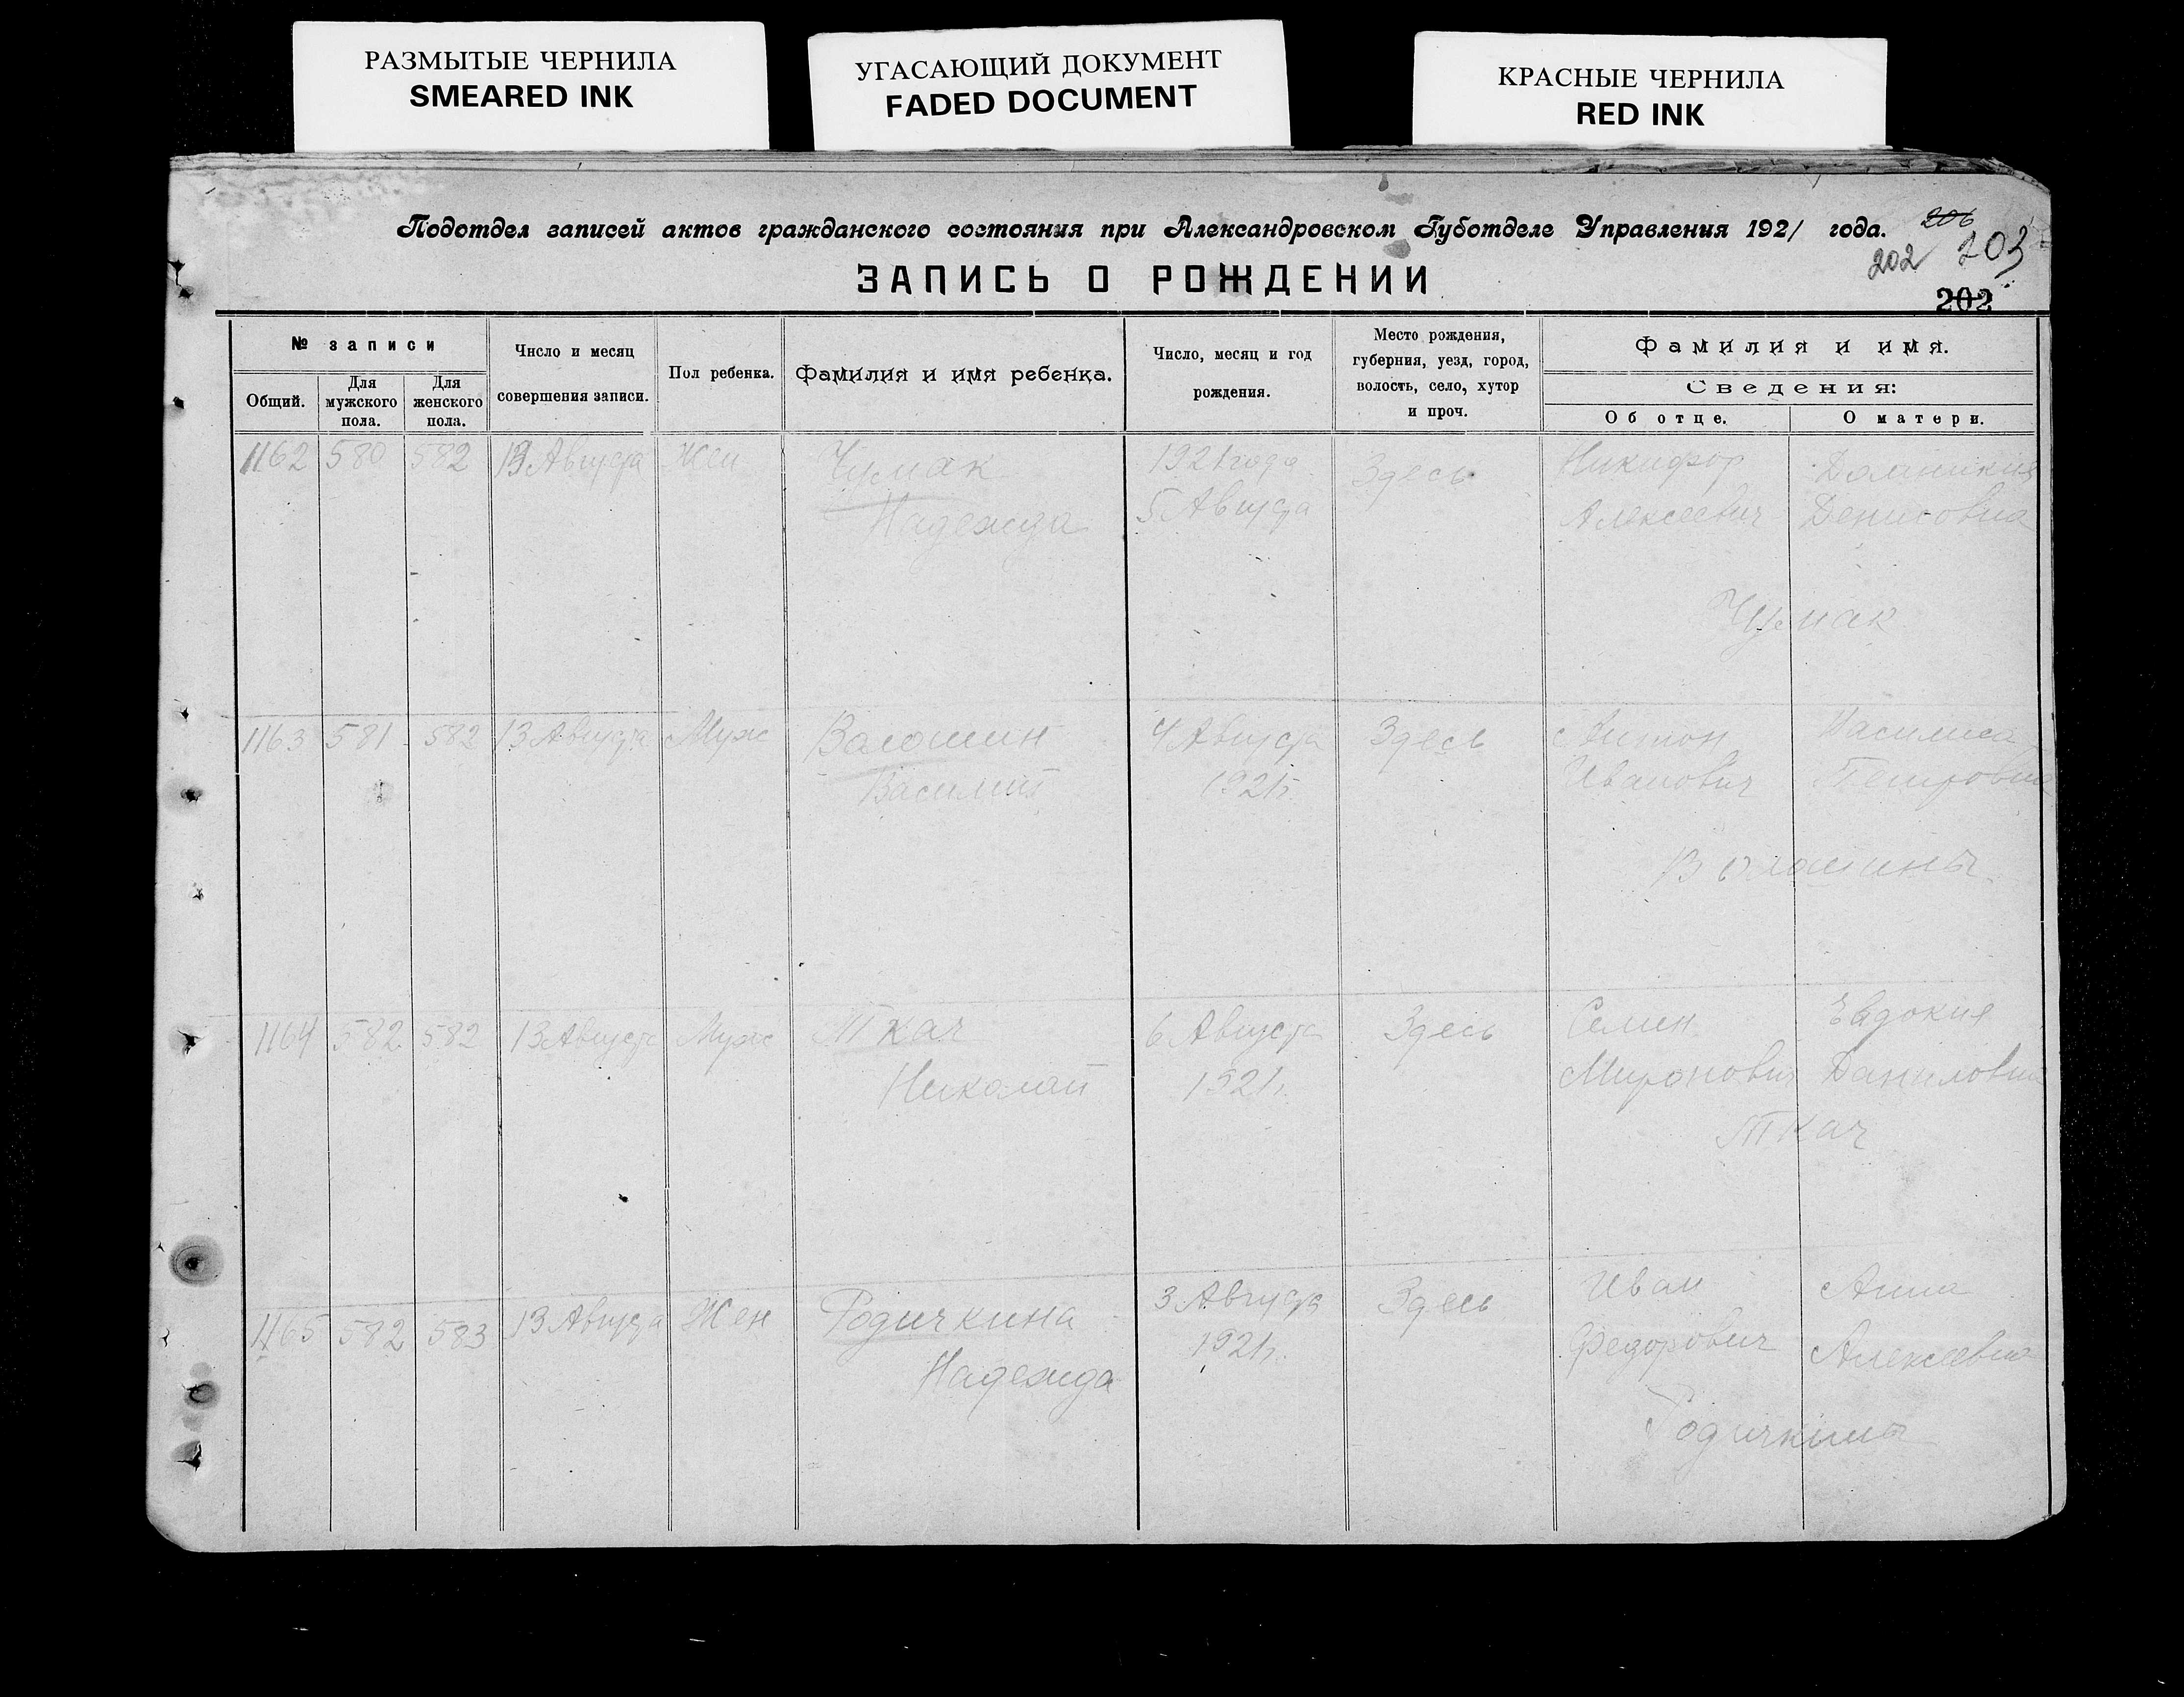 РАЗМЫТЫЕ ЧЕРНИЛА
SMEARED INK
УГАСАЮЩИЙ ДОКУМЕНТ
FADED DOCUMENT
КРАСНЫЕ ЧЕРНИЛА
RED INK
Подотдел записей актов гражданского состояния при Александровском Губотделе Управления 1921 года.
206
202 203
202
ЗАПИСЬ О РОЖДЕНИИ
№ записи
Общий.
Для мужского пола.
Для женского пола.
Число и месяц
совершения записи.
Пол ребенка.
Фамилия и имя ребенка.
Число, месяц и год
рождения.
Место рождения,
губерния, уезд, город,
волость, село, хутор
и проч.
Фамилия и имя.
Сведения:
Об отце.
О матери.
1162 580 582 13 Августа Жен Чумак 1921 года Здесь Никифор
Надежда 5 Августа Алексеевич Денисовна
Чумак
1163 581 582 13 Августа Муж Волошин 4 Августа Здесь Антон Василиса
Василий 1921г. Иванович Петровна
Волошины
1164 582 582 13 Августа Муж Ткач 6 Августа Здесь Семен Евдокия
Николай 1921г. Миронович Даниловна
Ткач
1165 582 583 13 Августа Жен Родичкина 3 Августа Здесь Иван Анна
Надежда 1921г. Федорович Алексеевна
Родичкины